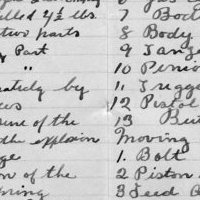 lled 4½ lbs.
two parts
Part
"
ately by
sure of the
the explosion
on of the
7 Bolt
8 Body
9 Tange
10 Penio
11 Trigge
12 Pistol
13 But
Moving
1. Bolt
2 Piston
3 Feed